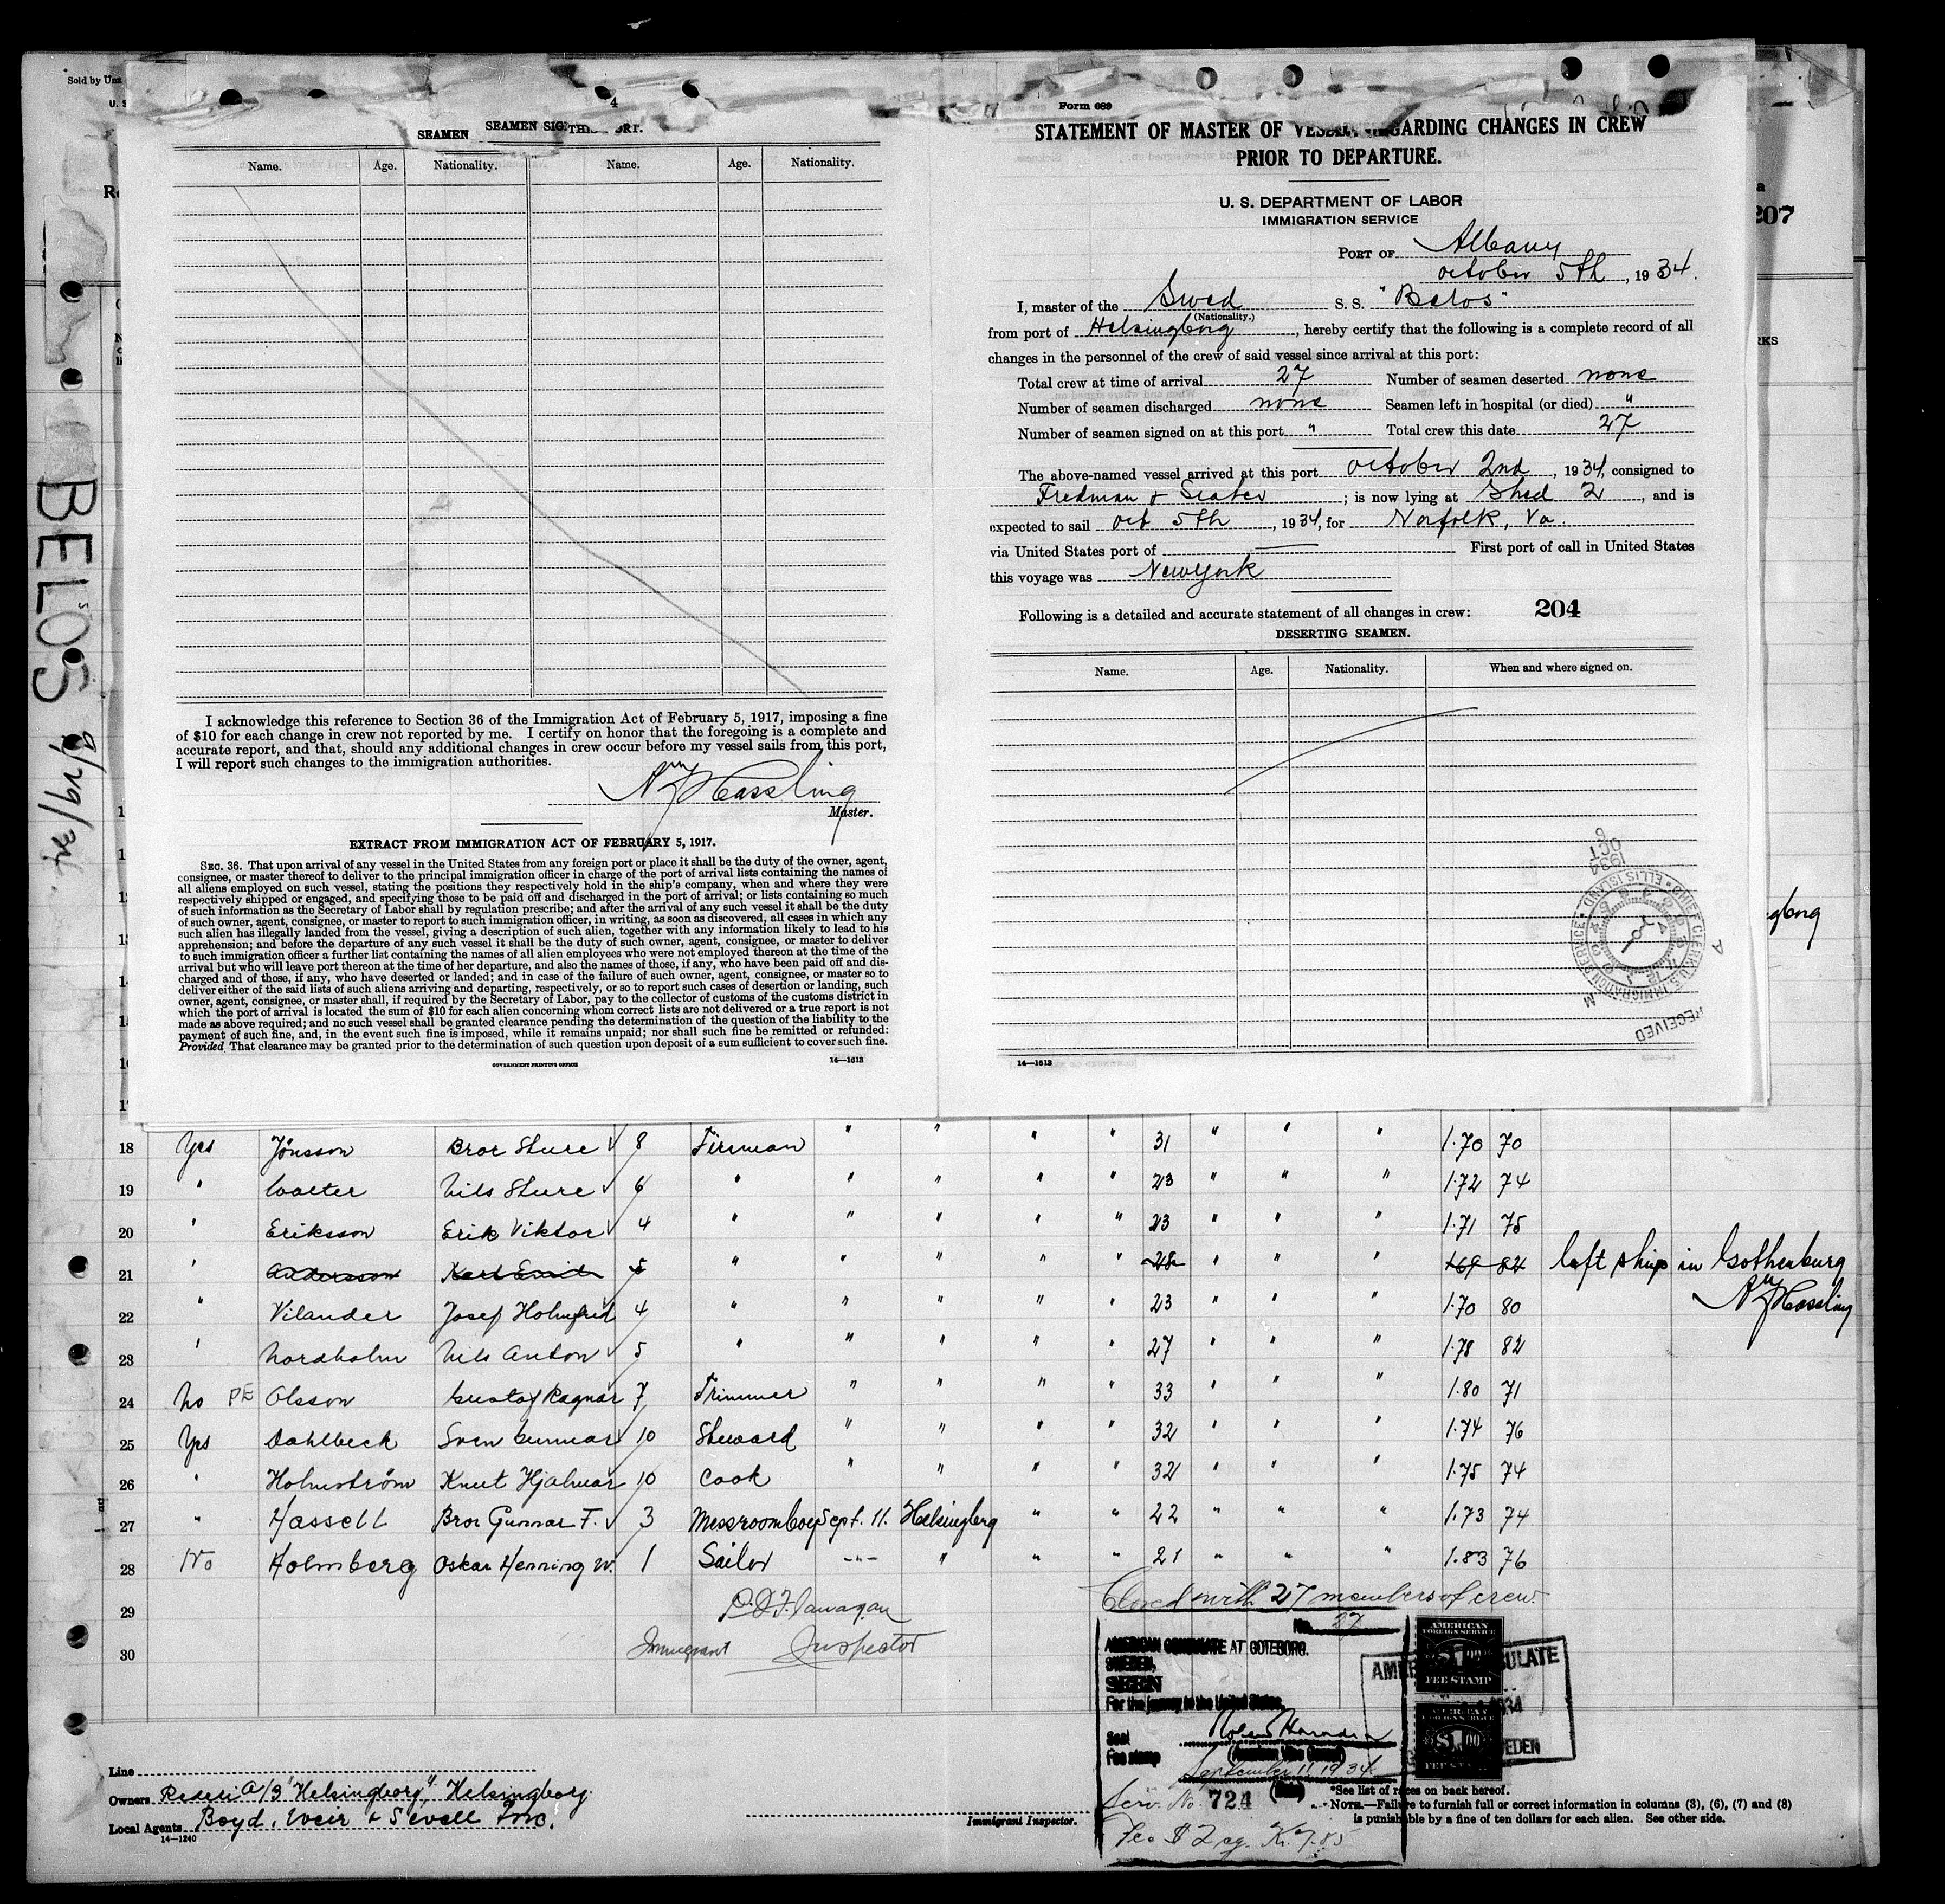 Sold by
U. S
4
SEAMEN SEAMEN SIG THI ORT.
Name. Age. Nationality. Name. Age. Nationality.
I acknowledge this reference to Section 36 of the Immigration Act of February 5, 1917, imposing a fine
of $10 for each change in crew not reported by me. I certify on honor that the foregoing is a complete and
accurate report, and that, should any additional changes in crew occur before my vessel sails from this port,
I will report such changes to the immigration authorities.
Hassling
Master.
EXTRACT FROM IMMIGRATION ACT OF FEBRUARY 5, 1917.
SEC. 36. That upon arrival of any vessel in the United States from any foreign port or place it shall be the duty of the owner, agent,
consignee, or master thereof to deliver to the principal immigration officer in charge of the port of arrival lists containing the names of
all aliens employed on such vessel, stating the positions they respectively hold in the ship's company, when and where they were
respectively shipped or engaged, and specifying those to be paid off and discharged in the port of arrival; or lists containing so much
of such information as the Secretary of Labor shall by regulation prescribe; and after the arrival of any such vessel it shall be the duty
of such owner, agent, consignee, or master to report to such immigration officer, in writing, as soon as discovered, all cases in which any
such alien has illegally landed from the vessel, giving a description of such alien, together with any information likely to lead to his
apprehension; and before the departure of any such vessel it shall be the duty of such owner, agent, consignee, or master to deliver
to such immigration officer a further list containing the names of all alien employees who were not employed thereon at the time of the
arrival but who will leave port thereon at the time of her departure, and also the names of those, if any, who have been paid off and dis-
charged and of those, if any, who have deserted or landed; and in case of the failure of such owner, agent, consignee, or master so to
deliver either of the said lists of such aliens arriving and departing, respectively, or so to report such cases of desertion or landing, such
owner, agent, consignee, or master shall, if required by the Secretary of Labor, pay to the collector of customs of the customs district in
which the port of arrival is located the sum of $10 for each alien concerning whom correct lists are not delivered or a true report is not
made as above required; and no such vessel shall be granted clearance pending the determination of the question of the liability to the
payment of such fine, and, in the event such fine is imposed, while it remains unpaid; nor shall such fine be remitted or refunded:
Provided, That clearance may be granted prior to the determination of such question upon deposit of a sum sufficient to cover such fine.
GOVERNMENT PRINTING OFFICE 14—1613
Form 689
STATEMENT OF MASTER OF VESSEL REGARDING CHANGES IN CREW
PRIOR TO DEPARTURE.
U. S. DEPARTMENT OF LABOR
IMMIGRATION SERVICE
PORT OF Albany
october 5th, 1934.
I, master of the Swed S. S. "Belos"
(Nationality.)
from port of Helsingborg, hereby certify that the following is a complete record of all
changes in the personnel of the crew of said vessel since arrival at this port:
Total crew at time of arrival 27 Number of seamen deserted none
Number of seamen discharged none Seamen left in hospital (or died) "
Number of seamen signed on at this port " Total crew this date 27
The above-named vessel arrived at this port october 2nd, 1934, consigned to
Fredman & Slater; is now lying at Shed 2, and is
expected to sail oct 5th, 1934, for Norfolk, Va.
via United States port of — First port of call in United States
this voyage was NewYork
Following is a detailed and accurate statement of all changes in crew: 204
DESERTING SEAMEN.
Name. Age. Nationality. When and where signed on.
OCT 6 1934
CHIEF CLERK U.S. IMMIGRATION SERVICE ELLIS ISLAND
RECEIVED
14—1613
207
RKS
gborg
BELOS 9/29/34
18 Yes Jönsson Bror Sture 8 Firman " " " " 31 " " " 1.70 70
19 " Walter Nils Sture 6 " " " " " 23 " " " 1.72 74
20 " Eriksson Erik Viktor 4 " " " " " 23 " " " 1.71 75
21 " Andersson Karl Emil 5 " " " " " 28 " " " 1.69 82 left ship in Gothenburg
Hassling
22 " Vilander Josef Holmfrid 4 " " " " " 23 " " " 1.70 80
23 " Nordholm Nils Anton 5 " " " " " 27 " " " 1.78 82
24 No PE Olsson Gustaf Ragnar 7 Trimmer " " " " 33 " " " 1.80 71
25 Yes Dahlbeck Sven Gunnar 10 Steward " " " " 32 " " " 1.74 76
26 " Holmström Knut Hjalmar 10 Cook " " " " 32 " " " 1.75 74
27 " Hassell Bror Gunnar F. 3 Messroomboy Sept. 11. Helsingbrg " " 22 " " " 1.73 74
28 No Holmberg Oskar Henning W. 1 Sailor -"- " " " 21 " " " 1.83 76
29
30
Closed with 27 members of crew.
Flanagan
Immigrant Inspector
No. 27
AMERICAN CONSULATE AT GOTEBORG,
SWEDEN.
SEEN
For the journey to the United States.
Seal
Fee stamp
(American Vice Consul)
September 11, 1934
(Date)
Serv. No. 724
Fee $ 2 eq. Kr. 7.85
AMERICAN
FOREIGN SERVICE
$1.00
FEE STAMP
$1.00
FEE STAMP
AMERICAN CONSULATE
1934
SWEDEN
Line
Owners Rederi A/B "Helsingborg", Helsingborg.
Local Agents Boyd, Weir & Sewell Inc.
14—1240
Immigrant Inspector.
*See list of races on back hereof.
NOTE.—Failure to furnish full or correct information in columns (3), (6), (7) and (8)
is punishable by a fine of ten dollars for each alien. See other side.